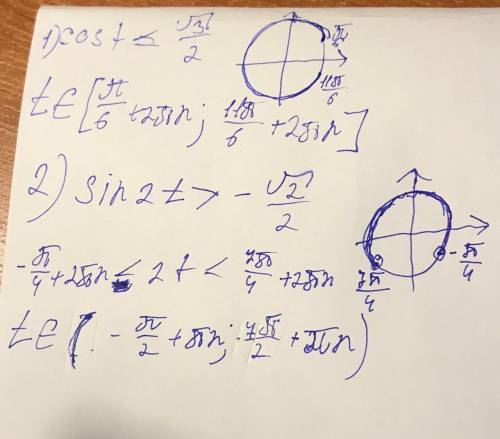 1) cos t ≤ √3/2
π/6
11π/6
t∈[π/6 + 2πn; 11π/6 + 2πn]
2) sin 2t > - √2/2
-π/4 + 2πn < 2t < 7π/4 + 2πn
7π/4
-π/4
t∈(-π/2 + πn; 7π/2 + πn)